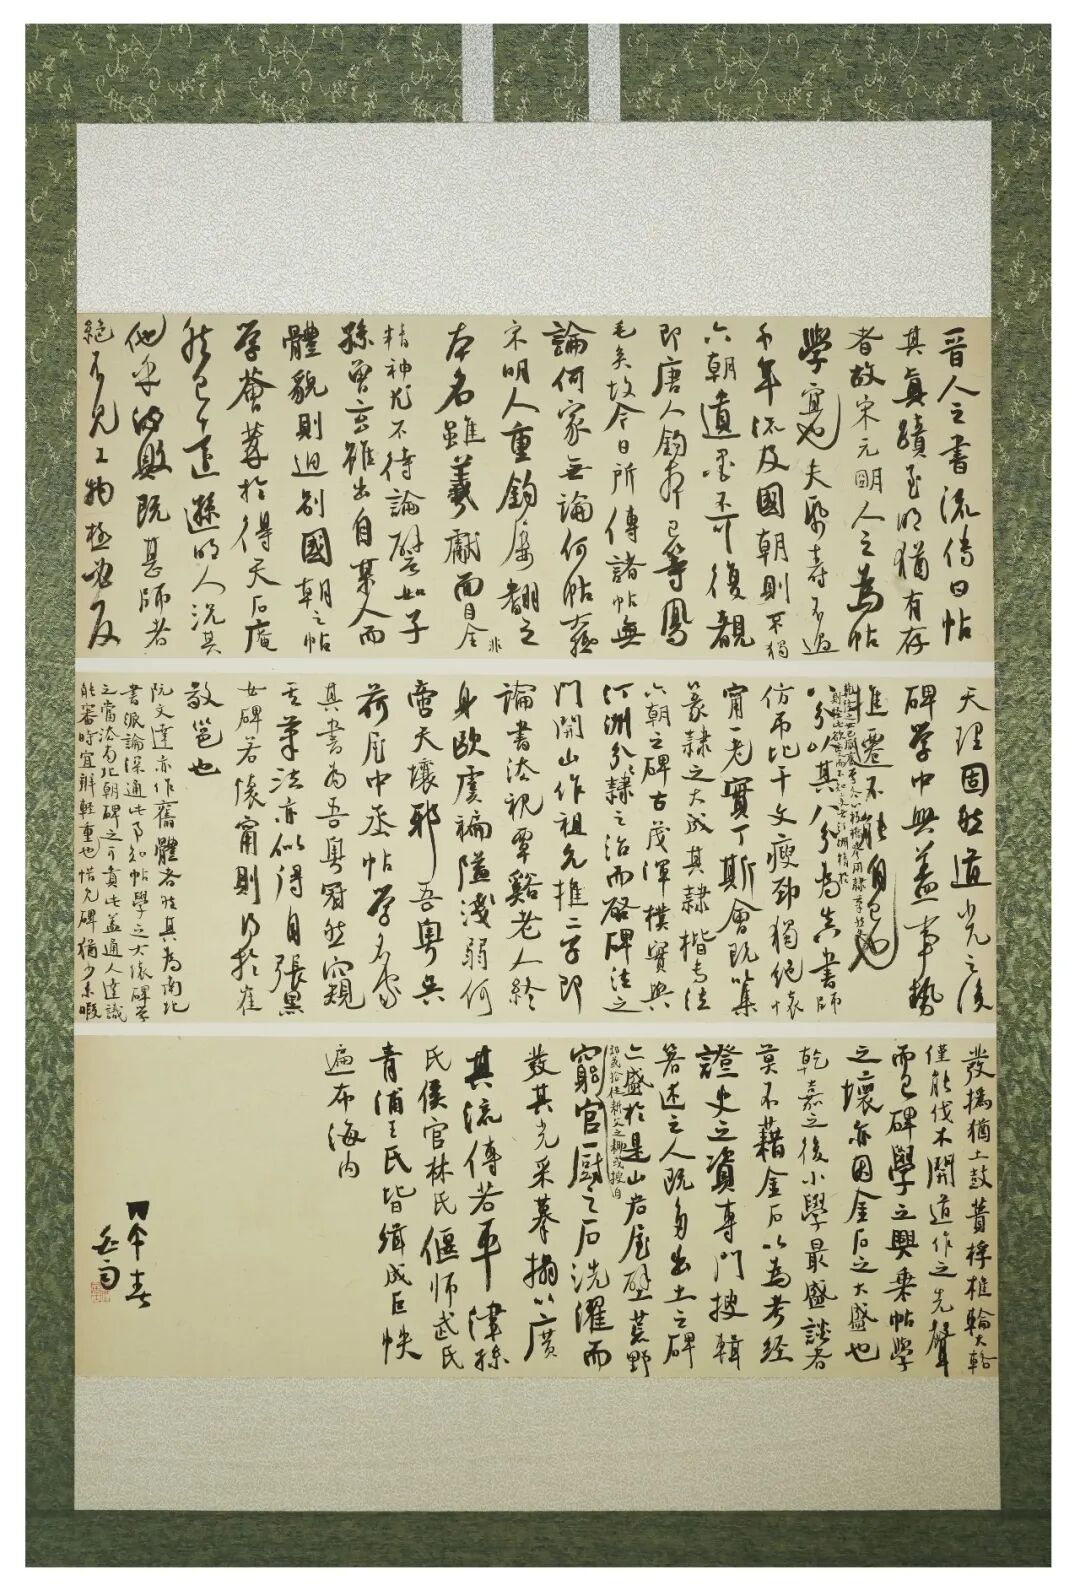 晉人之書流傳曰帖
其眞蹟至明猶有存
者故宋元明人之為帖
學宜也夫紙壽不過
千年流及國朝則不獨
六朝遺墨不可復覩
即唐人鉤本已等鳳
毛矣故今日所傳諸帖無
論何家無論何帖大抵
宋明人重鉤屢翻之
本名雖羲獻面目全非
精神尤不待論譬如子
孫曾玄雖出自某人而
體貌則迥別國朝之帖
學薈萃於得天石庵
然已遠遜明人況其
他乎流敗既甚師者
絕不見工物極必反
天理固然道光之後
碑學中興蓋事勢
推遷不能自已也
八分以其八分為真書師
仿吊比干文瘦勁獨絕懷
甯一老實丁斯會既集
篆隸之大成其隸楷專法
六朝之碑古茂渾樸實與
汀洲分隸之治而啟碑法之
門開山作祖允推二子即
論書法視覃谿老人終
身歐虞褊隘淺弱何
啻天壤邪吾粵吳
荷屋中丞帖學名家
其書為吾粵冠然窺
其筆法亦似得自張黑
女碑若懷甯則得於崔
敬邕也
阮文達亦作舊體者然其為南北
書派論深通此事知帖學之大壞碑學
之當法南北朝碑之可貴此蓋通人達識
能審時宜辨輕重也惜見碑猶少未暇
發撝猶土鼓蕢桴椎輪大輅
僅能伐木開道作之先聲
而已碑學之興乘帖學
之壞亦因金石之大盛也
乾嘉之後小學最盛談者
莫不藉金石以為考經
證史之資專門搜輯
著述之人既多出土之碑
亦盛於是山岩屋壁荒野
窮郊或拾從耕父之鋤或搜自
官厨之石洗濯而
發其光采摹搨以廣
其流傳若平津孫
氏侯官林氏偃師武氏
青浦王氏皆緝成巨帙
遍布海内